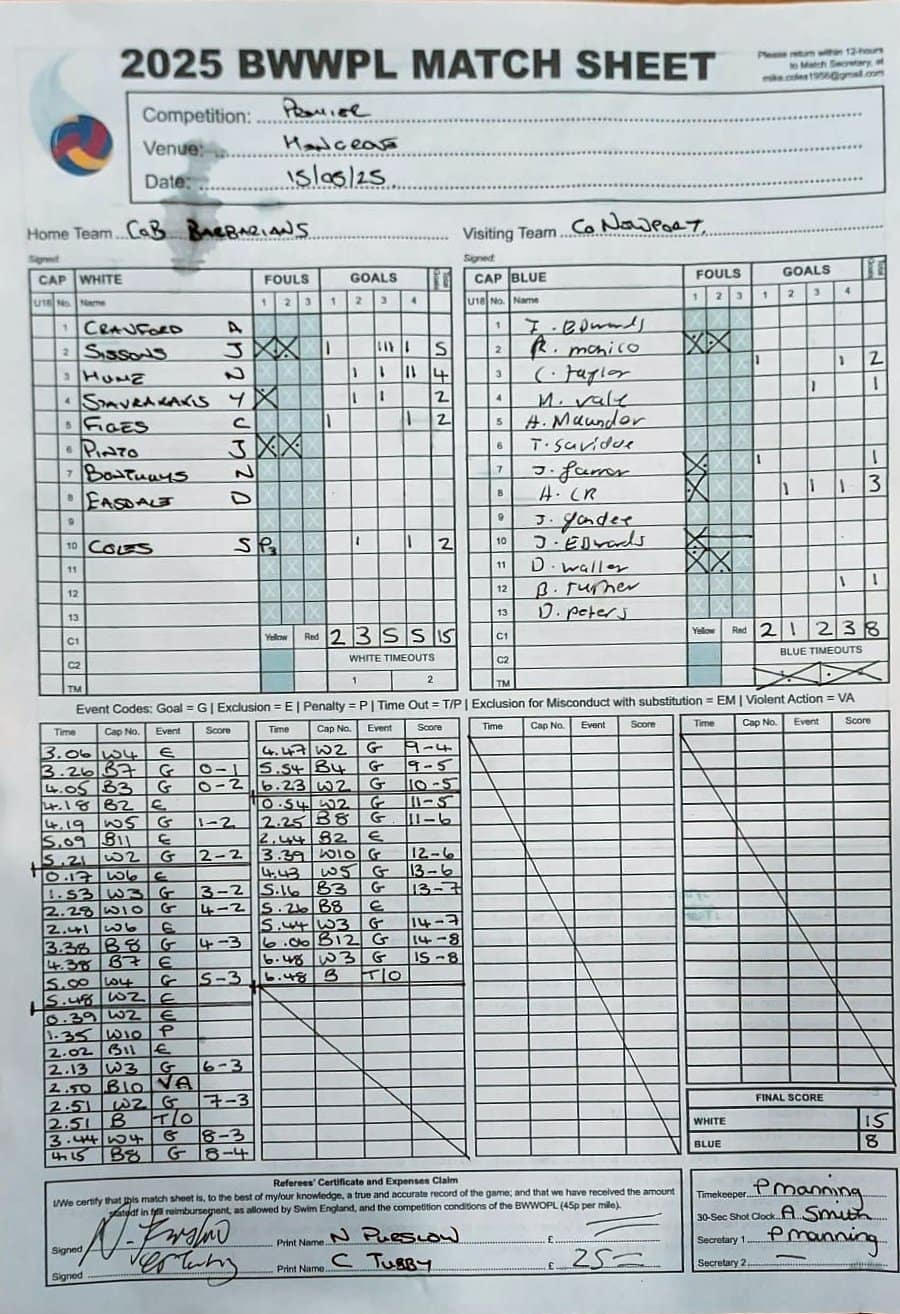 2025 BWWPL MATCH SHEET
Please return within 12-hours
to Match Secretary, at
mike.coles1956@gmail.com
Competition: PREMIER
Venue:
Date: 15/05/25
Home Team CoB BARBARIANS
Visiting Team Co NEWPORT.
Signed:
Signed:
CAP WHITE FOULS GOALS Total Goals
U18 No. Name 1 2 3 1 2 3 4
1 CRANFORD A
2 SISSONS J X X 1 111 1 5
3 HUNE N 1 1 11 4
4 STAVRAKAKIS Y X 1 1 2
5 FIGES C 1 1 2
6 PINTO J X X
7 N
8 EASDALE D
9
10 COLES S P3 1 1 2
11
12
13
C1 Yellow Red 2 3 5 5 15
C2 WHITE TIMEOUTS
TM 1 2
CAP BLUE FOULS GOALS Total Goals
U18 No. Name 1 2 3 1 2 3 4
1 F. Edwards
2 R. monico X X
3 C. taylor 1 1 2
4 M. vale 1 1
5 A. Maunder
6 T. Savidge
7 J. X 1 1
8 H. CR X 1 1 1 3
9 J. Yandee
10 J. Edwards X
11 D. waller X X
12 B. turner 1 1
13 D. peters
C1 Yellow Red 2 1 2 3 8
C2 BLUE TIMEOUTS
TM 1 2
Event Codes: Goal = G | Exclusion = E | Penalty = P | Time Out = T/P | Exclusion for Misconduct with substitution = EM | Violent Action = VA
Time Cap No. Event Score
3.06 W4 E
3.26 B7 G 0-1
4.05 B3 G 0-2
4.18 B2 E
4.19 W5 G 1-2
5.09 B11 E
5.21 W2 G 2-2
0.17 W6 E
1.53 W3 G 3-2
2.28 W10 G 4-2
2.41 W6 E
3.38 B8 G 4-3
4.38 B7 E
5.00 W4 G 5-3
5.48 W2 E
0.39 W2 E
1.35 W10 P
2.02 B11 E
2.13 W3 G 6-3
2.50 B10 VA
2.51 W2 G 7-3
2.51 B T/O
3.44 W4 G 8-3
4.15 B8 G 8-4
Time Cap No. Event Score
4.47 W2 G 9-4
5.54 B4 G 9-5
6.23 W2 G 10-5
0.54 W2 G 11-5
2.25 B8 G 11-6
2.44 B2 E
3.39 W10 G 12-6
4.43 W5 G 13-6
5.16 B3 G 13-7
5.26 B8 E
5.44 W3 G 14-7
6.06 B12 G 14-8
6.48 W3 G 15-8
6.48 B T/O
Time Cap No. Event Score
Time Cap No. Event Score
FINAL SCORE
WHITE 15
BLUE 8
Referees' Certificate and Expenses Claim
I/We certify that this match sheet is, to the best of my/our knowledge, a true and accurate record of the game; and that we have received the amount
stated in full reimbursement, as allowed by Swim England, and the competition conditions of the BWWOPL (45p per mile).
Signed Print Name N PURSLOW £
Signed Print Name C TUBBY £ 25
Timekeeper P manning
30-Sec Shot Clock A Smith
Secretary 1 P manning
Secretary 2 —